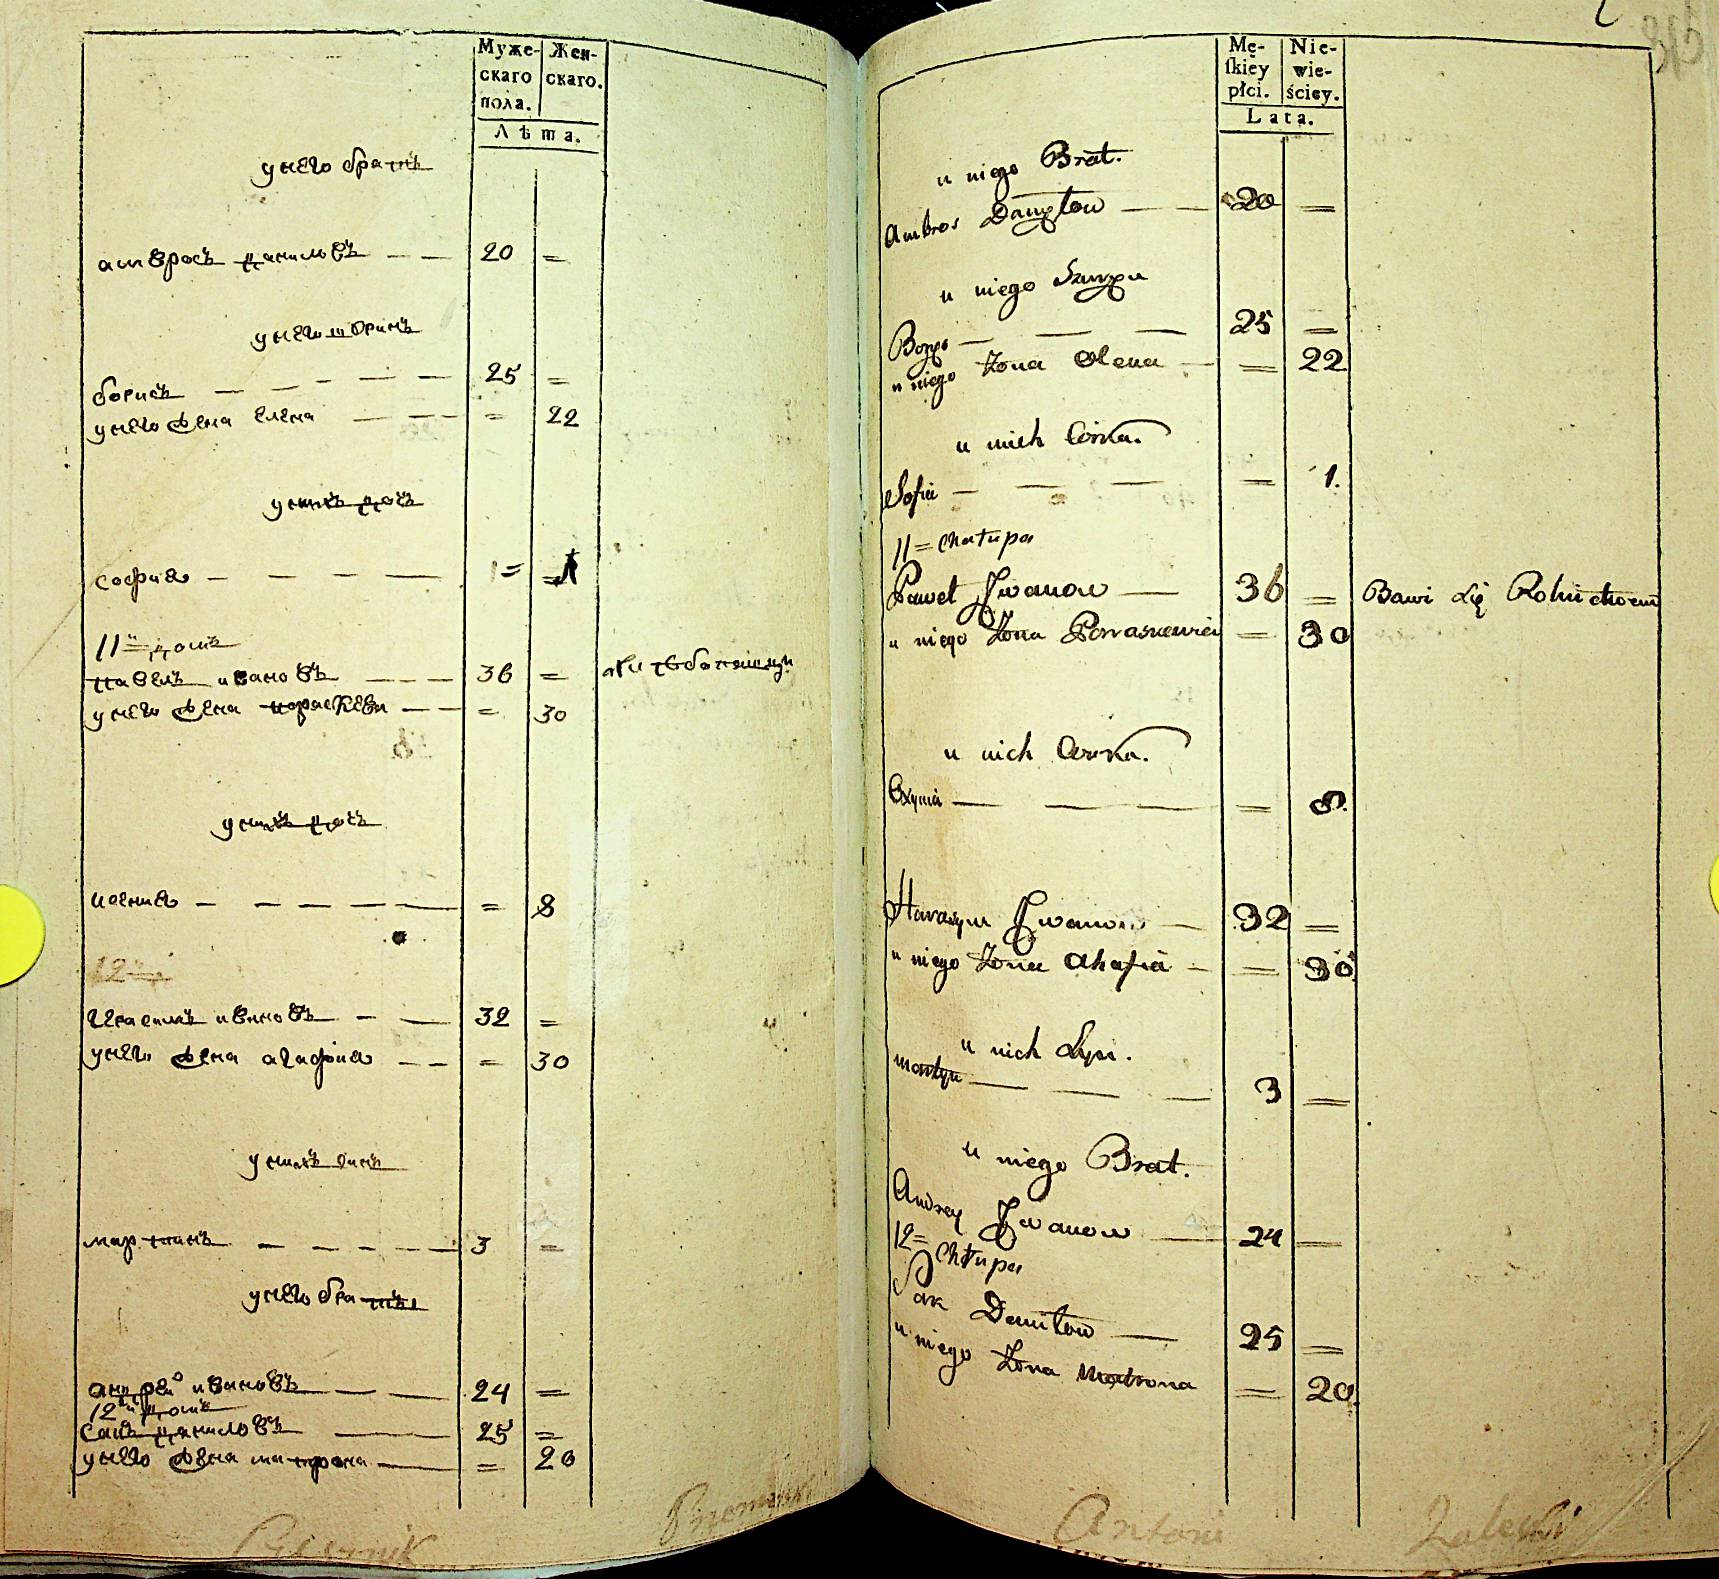 Муже-
скаго
пола.
Жен-
скаго.
Лѣта.
у него братъ
амвросъ даниловъ 20 =
у него шваринъ
борисъ 25 =
у него жена елена = 22
у нихъ дочь
софия 1 = = 1
11й домъ
павелъ ивановъ 36 =
у него жена пораскева = 30
у нихъ дочь
ксения = 8
12й
ивановъ 32 =
у него жена агафия = 30
у нихъ синъ
мартинъ 3 =
у него братъ
андрей ивановъ 24 =
12й домъ
сакъ даниловъ 25 =
у него жена матрона = 20
Mę-
ſkiey
płci.
Nie-
wie-
ściey.
Lata.
u niego Brat.
Ambros Danyłow 20 =
u niego Szurzyn
Borys 25 =
u niego Żona Olena = 22
u nich Córka.
Sofia = 1.
11= Chałupa
Paweł Jwanow 36 = Bawi się Rolnictwem
u niego Żona Parraskewia = 30
u nich Córka.
Oxynia = 8.
Harasym Jwanow 32 =
u niego Żona Ahafia = 30
u nich Syn.
Martyn 3 =
u niego Brat.
Andrey Jwanow 24 =
12= Chłupa
Sak Daniłow 25 =
u niego Żona Matrona = 20.
Antoni Zaleski